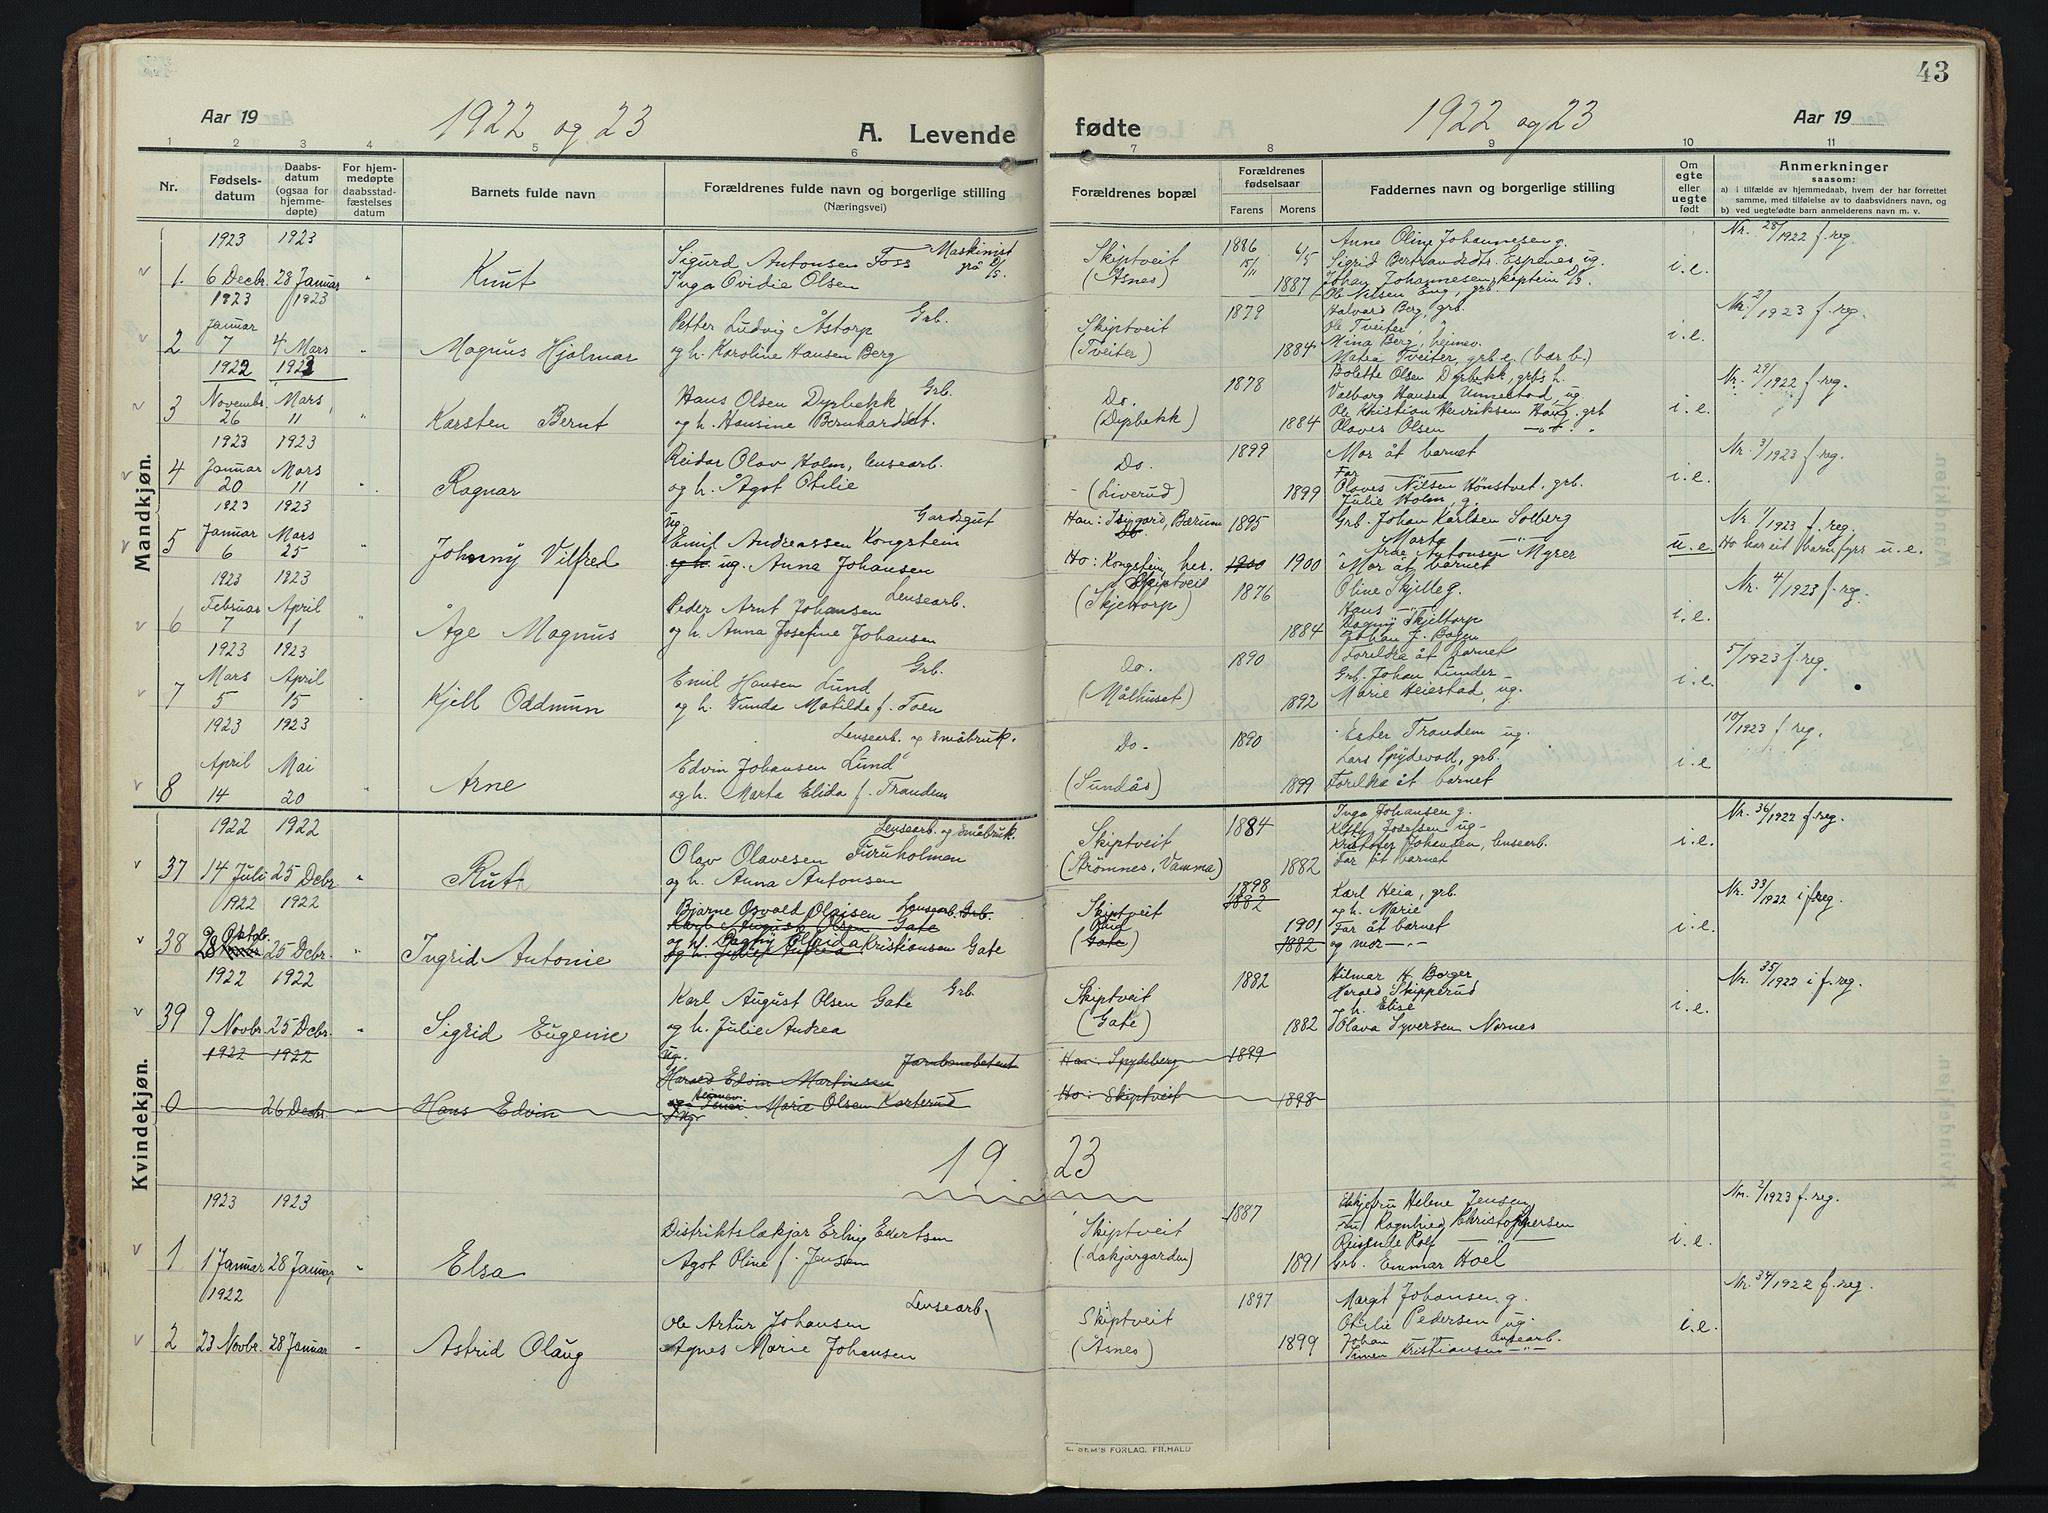 43
Aar 19 1922 og 23 A. Levende
fødte 1922 og 23 Aar 19
1 2 3 4 5 6 7 8 9 10 11
Nr. Fødselsdatum Daabsdatum (ogsaa for hjemmedøpte) For hjemmedøpte daabsstadfæstelses datum Barnets fulde navn Forældrenes fulde navn og borgerlige stilling (Næringsvei)
Forældrenes bopæl Forældrenes fødselsaar Farens Morens Faddernes navn og borgerlige stilling Om egte eller uegte født
Anmerkninger
saasom:
a) i tilfælde av hjemmedaab, hvem der har forrettet
samme, med tilføielse av to daabsvidners navn, og
b) ved uegtefødte barn anmelderens navn m. v.
Mandkjøn.
1923 1923
1. 6 Decbr. 28 Januar " Knut
Sigurd Antonsen Foss Maskinist
Inga Ovidie Olsen
Skiptveit
(Åsnes)
1886 15/11 4/5 1887
Anne Oline Johannesen g.
Sigrid Bertrandsdtr. Espenes ug.
Johan Johannesen, skiptein D/S.
Ole Nilsen Eng, grb.
i. e.
Nr. 28/1922 f. reg.
1923 1923
2 Januar 7 4 Mars " Magnus Hjalmar
Petter Ludvig Åstorp Grb.
og h. Karoline Hansen Berg
Skiptveit
(Tveiter)
1879 1884
Halvard Berg, grb.
Ole Tveiter, "
Mina Berg, heimev.
Matea Tveiter, grb. e. (bar b.)
i. e.
Nr. 27/1923 f. reg.
1922 1923
3 Novembr. 26 Mars 11 " Karsten Bernt
Hans Olsen Dyrbekk Grb.
og h. Hansine Bernhardsdt.
Do.
(Dyrbekk)
1878 1884
Bolette Olsen Dyrbekk, grbs h.
Valborg Hansen Unnestad, ug.
Ole Kristian Henriksen Haug, grb
Olaves Olsen — " —
i. e.
Nr. 29/1922 f. reg.
1923 1923
4 Januar 20 Mars 11 " Ragnar
Reidar Olav Holm, lensearb.
og h. Agot Otilie
Do.
(Liverud)
1899 1899
Mor åt barnet
Far
Olaves Nilsen Hönstvet, grb.
Julie Holm, g.
i. e.
Nr. 3/1923 f. reg.
1923 1923
5 Januar 6 Mars 25 " Johnny Vilfred
ug. Gardsgut
Emil Andreassen Kongstein
og h. ug. Anna Johansen
Han: Bærum
Ho: Kongstein, her.
1895 1900 1900
Grb. Johan Karlsen Solberg
Marta
Antonsen Myrer
Mor åt barnet
u. e.
Nr. 1/1923 f. reg.
Ho har eit barn fyrr u. e.
1923 1923
6 Februar 7 April 1 " Åge Magnus
Peder Arnt Johansen Lensearb.
og h. Anna Josefine Johansen
Skiptveit
(Skjeltorp)
1876 1884
Oline Skjelle g.
Hans — " —
Dagny Skjeltorp
Johan J. Bogen
i. e.
Nr. 4/1923 f. reg.
1923 1923
7 Mars 5 April 15 " Kjell Oddmun
Emil Hansen Lund Grb.
og h. Gunda Matilde f. Toen
Do.
(Målhuset)
1890 1892
Forelda åt barnet
Grb. Johan Lunder
Marie Heiestad, ug.
i. e.
5/1923 f. reg.
1923 1923
8 April 14 Mai 20 " Arne
Lensearb. og småbruk.
Edvin Johansen Lund
og h. Marta Elida f. Trandem
Do.
(Sundås)
1890 1899
Ester Trandem ug.
Lars Spydevold, grb.
Forelda åt barnet
i. e.
10/1923 f. reg.
Kvindekjøn.
1922 1922
37 14 Juli 25 Dcbr. " Rut
Lensearb. og småbruk.
Olav Olavesen Furuholmen
og h. Anna Antonsen
Skiptveit
(Strømnes, Vamma)
1884 1882
Inga Johansen g.
Kitty Josefsen ug
Kristofer Johansen, lensearb.
Far åt barnet
i. e.
Nr. 36/1922 f. reg.
1922 1922
38 28 Oktob. 25 Dcbr. " Ingrid Antonie
Bjarne Osvald Olaisen Lensearb. Grb.
Karl August Olsen Gate
og h. Dagny Elvida Kristiansen Gate
og h. Julie Andrea
Skiptveit
(Gate)
1898 1882 1901 1882
Karl Heia, grb.
og h. Marie
Far åt barnet
og mor — " —
i. e.
Nr. 33/1922 i f. reg.
1922 1922
39 9 Novbr. 25 Dcbr. " Sigrid Eugenie
Karl August Olsen Gate Grb.
og h. Julie Andrea
Skiptveit
(Gate)
1882 1882
Hilmar H. Borger
Harald Skipperud
h. Elise
Olava Syversen Nornes
i. e.
Nr. 35/1922 i f. reg.
1922 1922
0 26 Decbr. Hans Edvin
ug.
Harald Edvin Martinsen
Marie Olsen Karterud
Han: Spydeberg
Ho: Skiptveit
1899 1898
1923
1923 1923
1 1 Januar 28 Januar " Elsa
Distriktslækjar Erling Evertsen
Agot Oline f. Jensen
Skiptveit
(Lækjargarden)
1887 1891
Enkjefru Helene Jensen
Fru Ragnhild Christophersen
Reisende Rolf — " —
Grb. Emmar Hoel
i. e.
Nr. 2/1923 f. reg.
1922
2 23 Novbr. 28 Januar - Astrid Olaug
Ole Artur Johansen Lensearb.
Agnes Marie Johansen
Skiptveit
(Åsnes)
1897 1899
Margit Johansen, g.
Otilie Pedersen ug.
Johan lensearb.
Simen Kristiansen — " —
i. e.
Nr. 34/1922 f. reg.
E. SEM'S FORLAG, FR.HALD